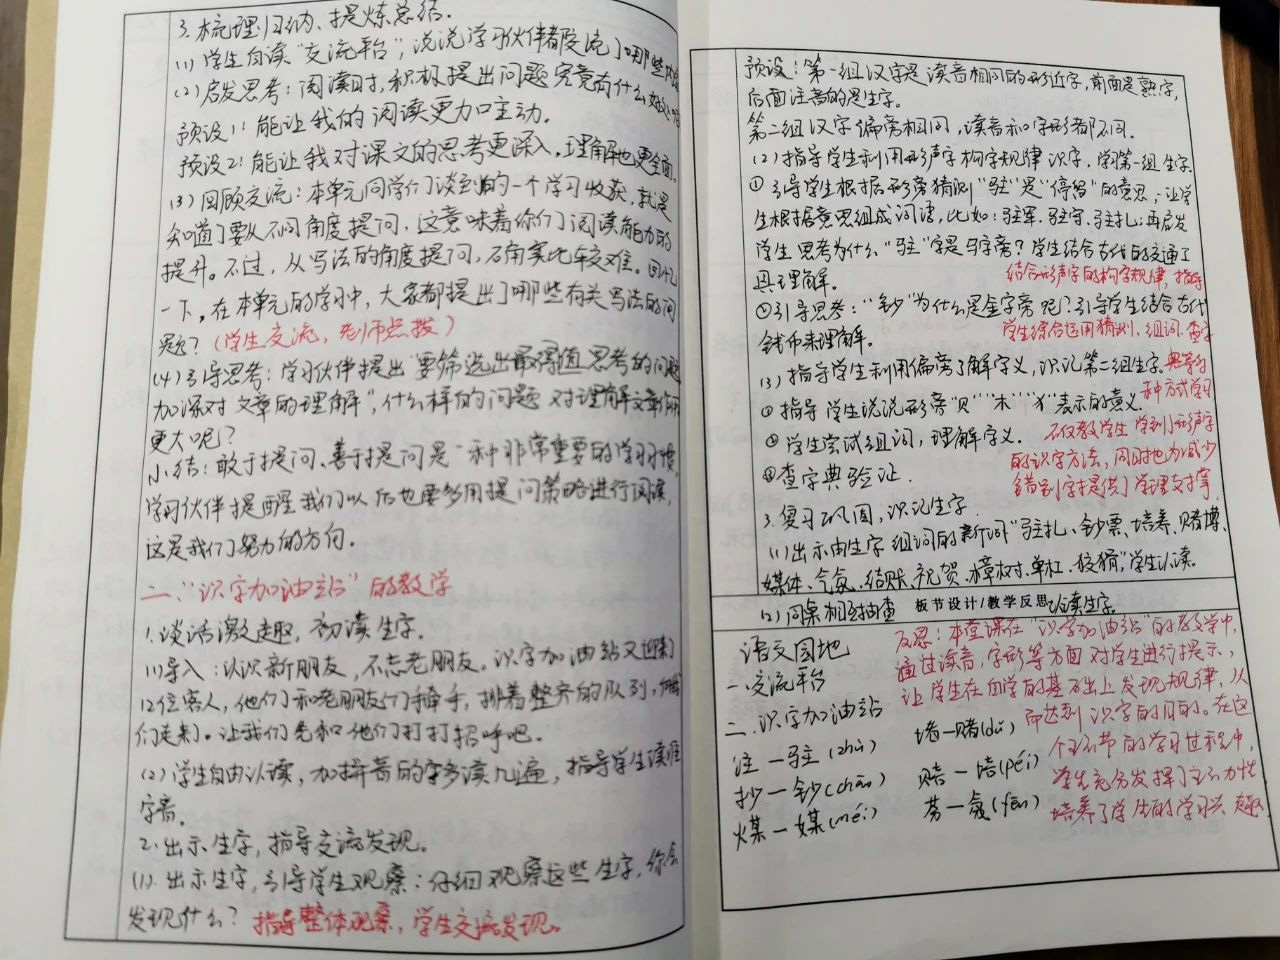 3.梳理归纳、提炼总结.
(1)学生自读"交流平台",说说学习伙伴都交流了哪些内容
(2)启发思考:阅读时,积极提出问题究竟有什么好处呢
预设1:能让我的阅读更加主动.
预设2:能让我对课文的思考更深入,理解也更全面.
(3)回顾交流:本单元同学们谈到的一个学习收获,就是
知道了要从不同角度提问,这意味着你们阅读能力的
提升。不过,从写法的角度提问,确实比较难。回忆
一下,在本单元的学习中,大家都提出了哪些有关写法的问
题?(学生交流,老师点拨)
(4)引导思考:学习伙伴提出"要筛选出最得值思考的问题
加深对文章的理解",什么样的问题对理解文章作用
更大呢?
小结:敢于提问、善于提问是一种非常重要的学习习惯,
学习伙伴提醒我们以后也要多用提问策略进行阅读,
这是我们努力的方向.
二."识字加油站"的教学
1.谈话激趣,初读生字.
(1)导入:认识新朋友,不忘老朋友。识字加油站又迎来
12位客人,他们和老朋友们手牵手,排着整齐的队列,向我
们走来。让我们先和他们打打招呼吧.
(2)学生自由认读,加拼音的字多读几遍,指导学生读准
字音.
2.出示生字,指导交流发现.
(1).出示生字,引导学生观察:仔细观察这些生字,你会
发现什么?指导整体观察,学生交流发现。
预设:第一组汉字是读音相同的形近字,前面是熟字,
后面注音的是生字。
第二组汉字偏旁相同,读音和字形都不同.
(2)指导学生利用形声字构字规律识字,学习第一组生字
①引导学生根据形旁猜测"驻"是"停留"的意思;让学
生根据意思组成词语,比如:驻军、驻守、驻扎;再启发
学生思考为什么"驻"字是马字旁?学生结合古代的交通工
具理解.
结合形声字的构字规律,指导
②引导思考:"钞"为什么是金字旁呢?引导学生结合古代
学生综合运用猜测、组词、查字
钱币来理解.
(3)指导学生利用偏旁了解字义,识记第二组生字.
典等多
种方式学习
①指导学生说说形旁"贝""木""犭"表示的意义.
②学生尝试组词,理解字义.
不仅教学生学到形声字
的识字方法,同时也为减少
③查字典验证.
错别字提供了学理支撑
3.复习巩固,识记生字.
(1)出示由生字组词的新词"驻扎、钞票、培养、赌博、
媒体、气氛、结账、祝贺、樟树、单杠、狡猾",学生认读。
(2)同桌相互抽查 板书设计/教学反思 认读生字.
语文园地
一.交流平台
二.识字加油站
注—驻(zhù) 堵—赌(dǔ)
抄—钞(chāo) 赔—培(péi)
煤—媒(méi) 芬—氛(fēn)
反思:本堂课在"识字加油站"的教学中,
通过读音,字形等方面对学生进行提示,
让学生在自学的基础上发现规律,从
而达到识字的目的。在这
个环节的学习过程中,
学生充分发挥了主动性
培养了学生的学习兴趣